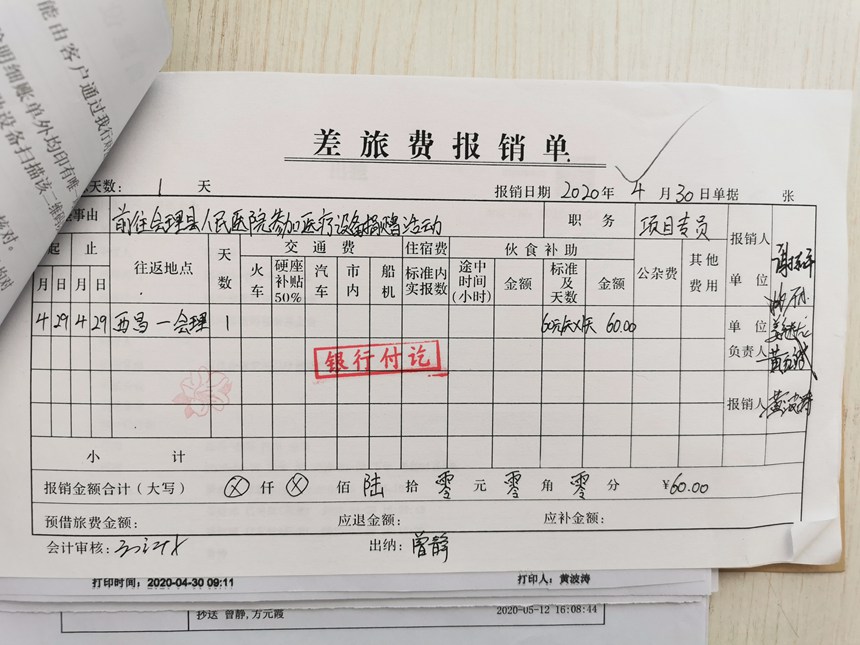 能由客户通过我行
明细账单外均印有唯
设备扫描该二维码
核对。
差旅费报销单
天数: 1 天
报销日期 2020年 4月30日单据 张
事由 前往会理县人民医院参加医疗设备捐赠活动 职务 项目专员
报销人
单位
起 止 往返地点 天数 交通费 住宿费 伙食补助 公杂费 其他费用
月 日 月 日 火车 硬座补贴50% 汽车 市内 船机 标准内实报数 途中时间(小时) 金额 标准及天数 金额
4 29 4 29 西昌一会理 1 60元/天×1天 60.00
单位负责人
银行付讫
报销人 黄波涛
小计
报销金额合计(大写) ⊗ 仟 ⊗ 佰 陆 拾 零 元 零 角 零 分 ¥60.00
预借旅费金额: 应退金额: 应补金额:
会计审核: 出纳: 曾静
打印时间: 2020-04-30 09:11 打印人: 黄波涛
抄送 曾静,方元霞 2020-05-12 16:08:44